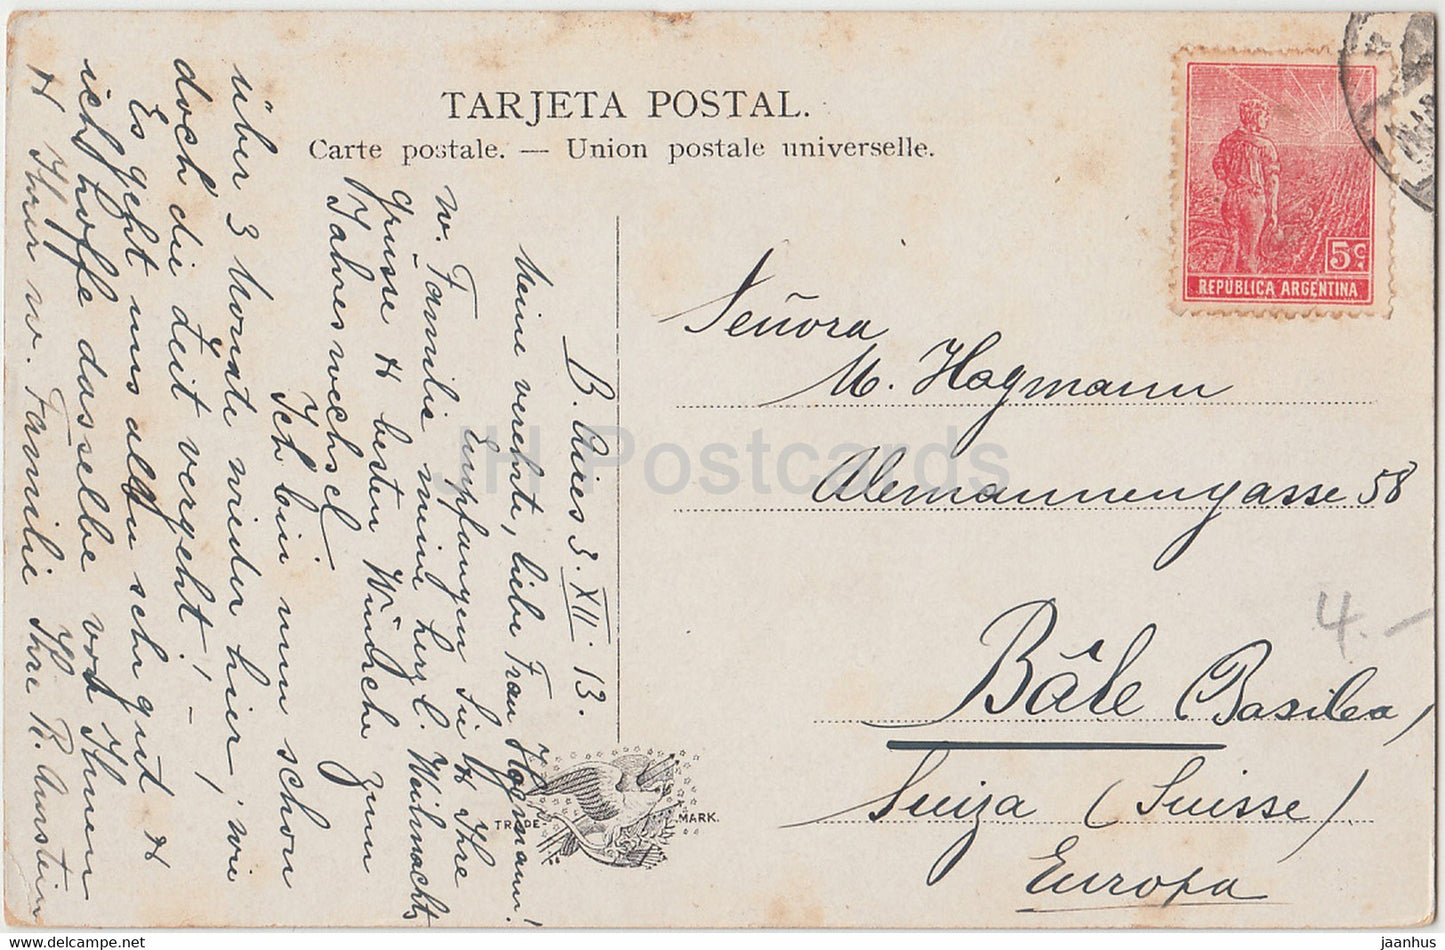 TARJETA POSTAL.
Carte postale. — Union postale universelle.
REPÚBLICA ARGENTINA
5c.
B. Aires 3. XII. 13.
Meine verehrte, liebe Frau Hagmann!
Empfangen Sie & Ihre
w. Familie meine herzl. Weihnachts
grüsse & besten Wünsche zum
Jahreswechsel
Ich bin nun schon
über 3 Monate wieder hier, wie
doch die Zeit vergeht! -
Es geht uns allen sehr gut &
ich hoffe dasselbe von Ihnen
& Ihrer w. Familie Ihre R.
Señora
M. Hagmann
Alemannengasse 58
Bâle (Basilea)
Suiza (Suisse)
Europa
4.-
TRADE MARK.
JH Postcards
www.delcampe.net
jaanhus